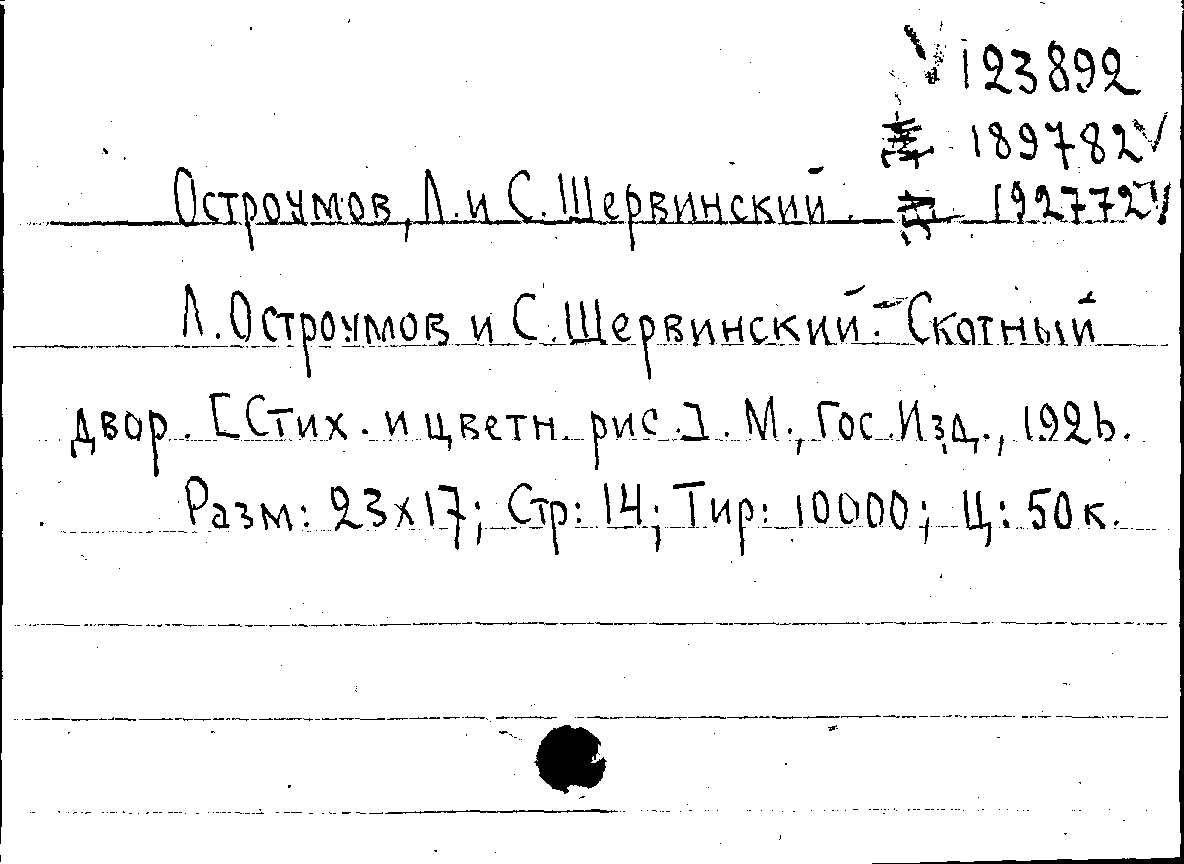 √ 123892
189782 √
Остроумов, Л. и С. Шервинский. 192772 √
Л. Остроумов и С. Шервинский. Скотный
двор. [Стих. и цветн. рис.]. М., Гос. Изд., 1926.
Разм: 23х17; Стр: 14; Тир: 10000; Ц: 50 к.